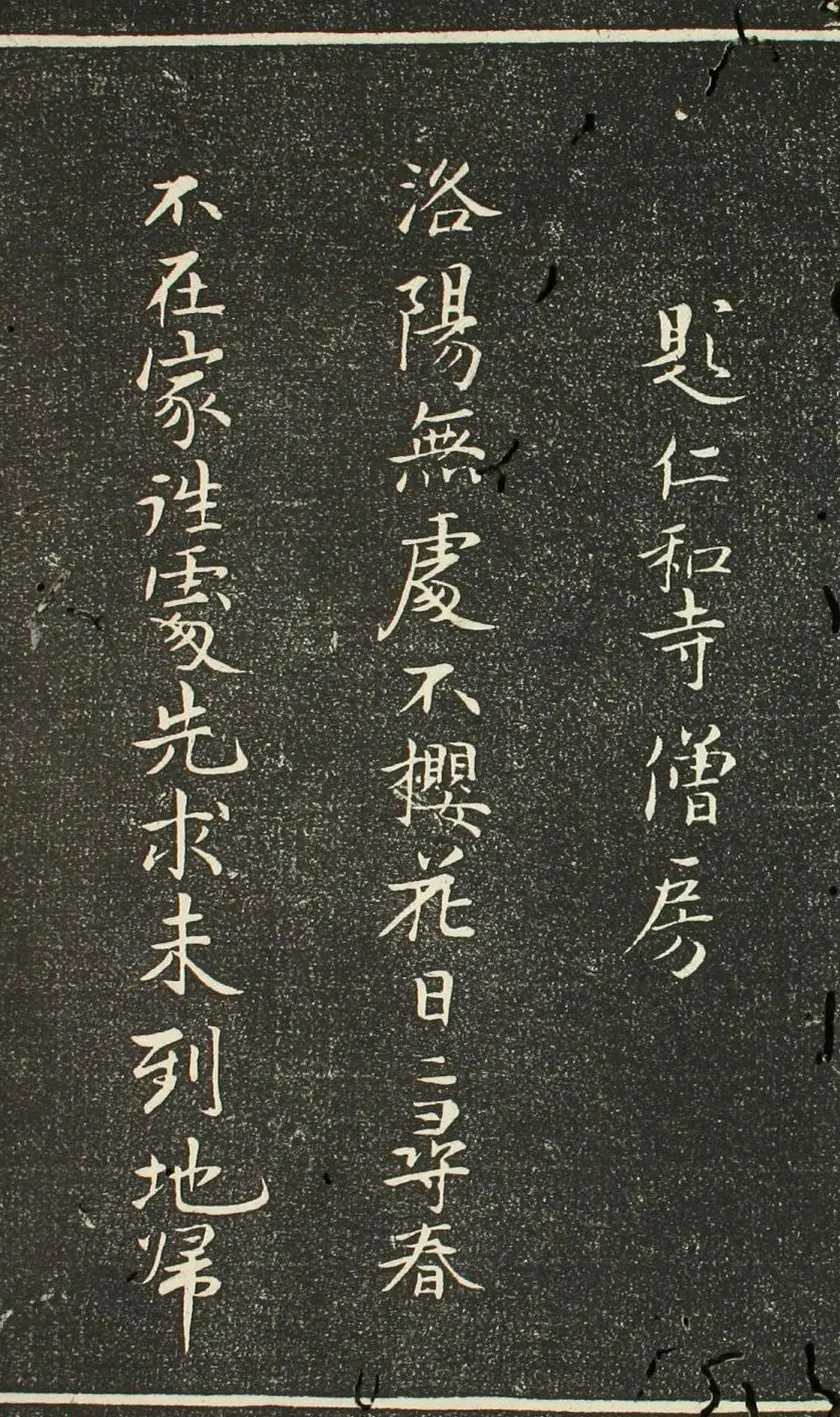 題仁和寺僧房
洛陽無處不櫻花日〻尋春
不在家誰處先求未到地帰